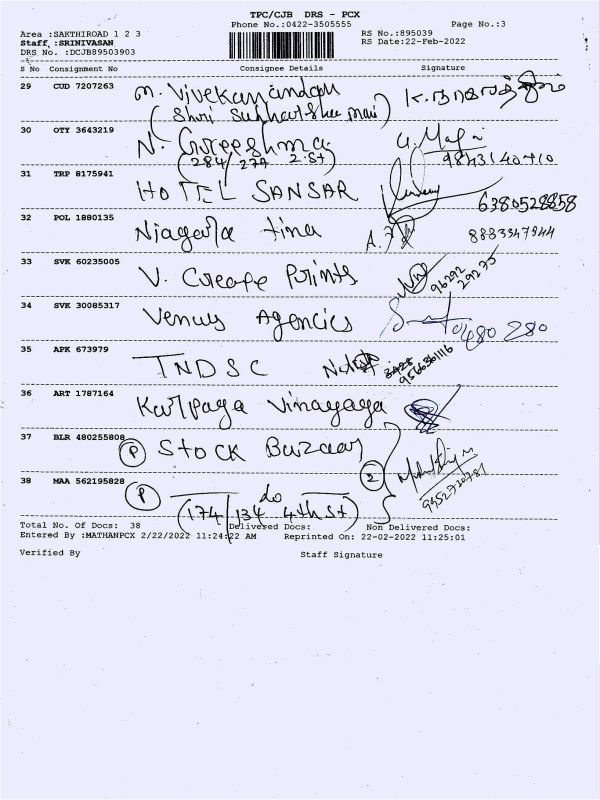 TPC/CJB DRS - PCX
Phone No.:0422-3505555 Page No.:3
Area :SAKTHIROAD 1 2 3 RS No.:895039
Staff :SRINIVASAN RS Date:22-Feb-2022
DRS No. :DCJB89503903
S No Consignment No Consignee Details Signature
29 CUD 7207263 M. Vivekanandan
(Shri
30 OTY 3643219 N. Greeshma
(284/277 2.st) 9843140710
31 TRP 8175941 HOTEL SANSAR 6380528858
32 POL 1880135 Niagara 8883347944
33 SVK 60235005 V. Create Prints 96292
29275
34 SVK 30085317 Venus Agencies 0480 280
35 APK 673979 TNDSC
9566361116
36 ART 1787164 Karpaga Vinayaga
37 BLR 480255808 (P) Stock Bazaar
38 MAA 562195828 (P) do (2)
(174/134 4th st)
Total No. Of Docs: 38 Delivered Docs: Non Delivered Docs:
Entered By :MATHANPCX 2/22/2022 11:24:22 AM Reprinted On: 22-02-2022 11:25:01
Verified By Staff Signature